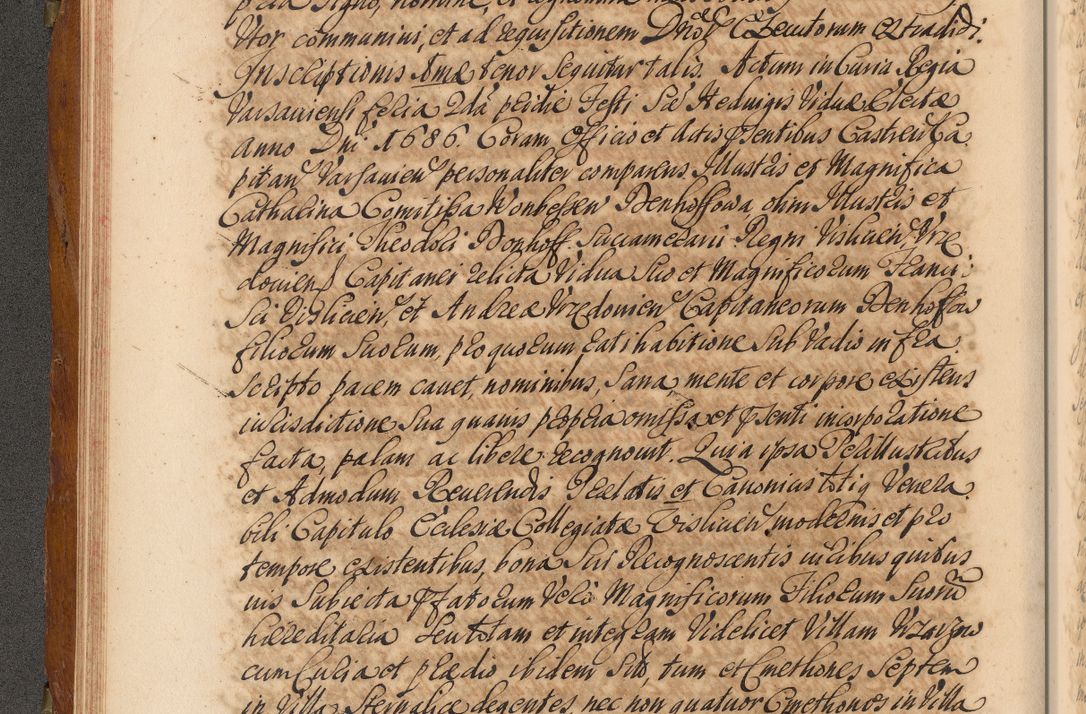 ptor communivi, et ad requisitionem Dnōrū Executorum extradidi:
Inscriptionis autem tenor sequitur talis. Actum in Curia Regia
Varsauiensi feria 2dā pridie Festi Sae Heduigis Viduae Electae
Anno Dni 1686. Coram Officio et Actis pntibus Castren Ca
pitan Varsavien personaliter comparens Illustris et Magnifica
Catharina Comitissa Denhoffowa, olim Illustris et
Magnifici Theodori Donhoff Succamerarii Regni Vislicien, Vrze
dovien Capitanei relicta Vidua Suo et Magnificorum Franci:
sci Vislicien, et Andreae Vrzedovien Capitaneorum Denhoffow
filiorum Suorum, pro quorum ratihabitione sub vadio infra
scripto pacem cavet, nominibus, sana, mente et corpore existens
iurisdictione sua quavis propria omissa et pnti incorporatione
facta, palam ac libere recognovit. Quia ipsa Perillustribus
et Admodum Reverendis Praelatis et Canonicis totiq Venera
bili Capitulo Ecclesiae Collegiatae Vislicien modernis et pro
tempore existentibus, bona Sui Recognoscentis iuribus quibus
vis Subiecta pfatorum vero Magnificorum Filiorum Suorū
haereditaria seu totam et integram videlicet Villam
cum Curia et praedio ibidem sito, tum et Cmethones Septem
in Villa degentes, nec non quatuor Cmethones in Villa